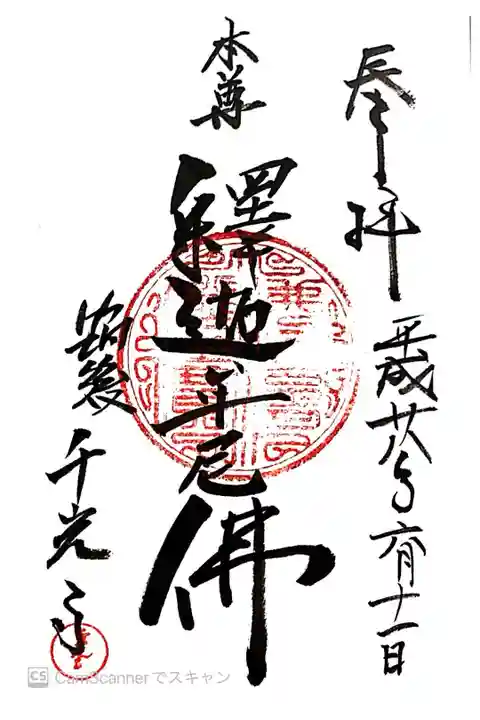 奉拝
平成廿八年六月十一日
本尊
釋迦牟尼佛
千光寺
CS CamScannerでスキャン